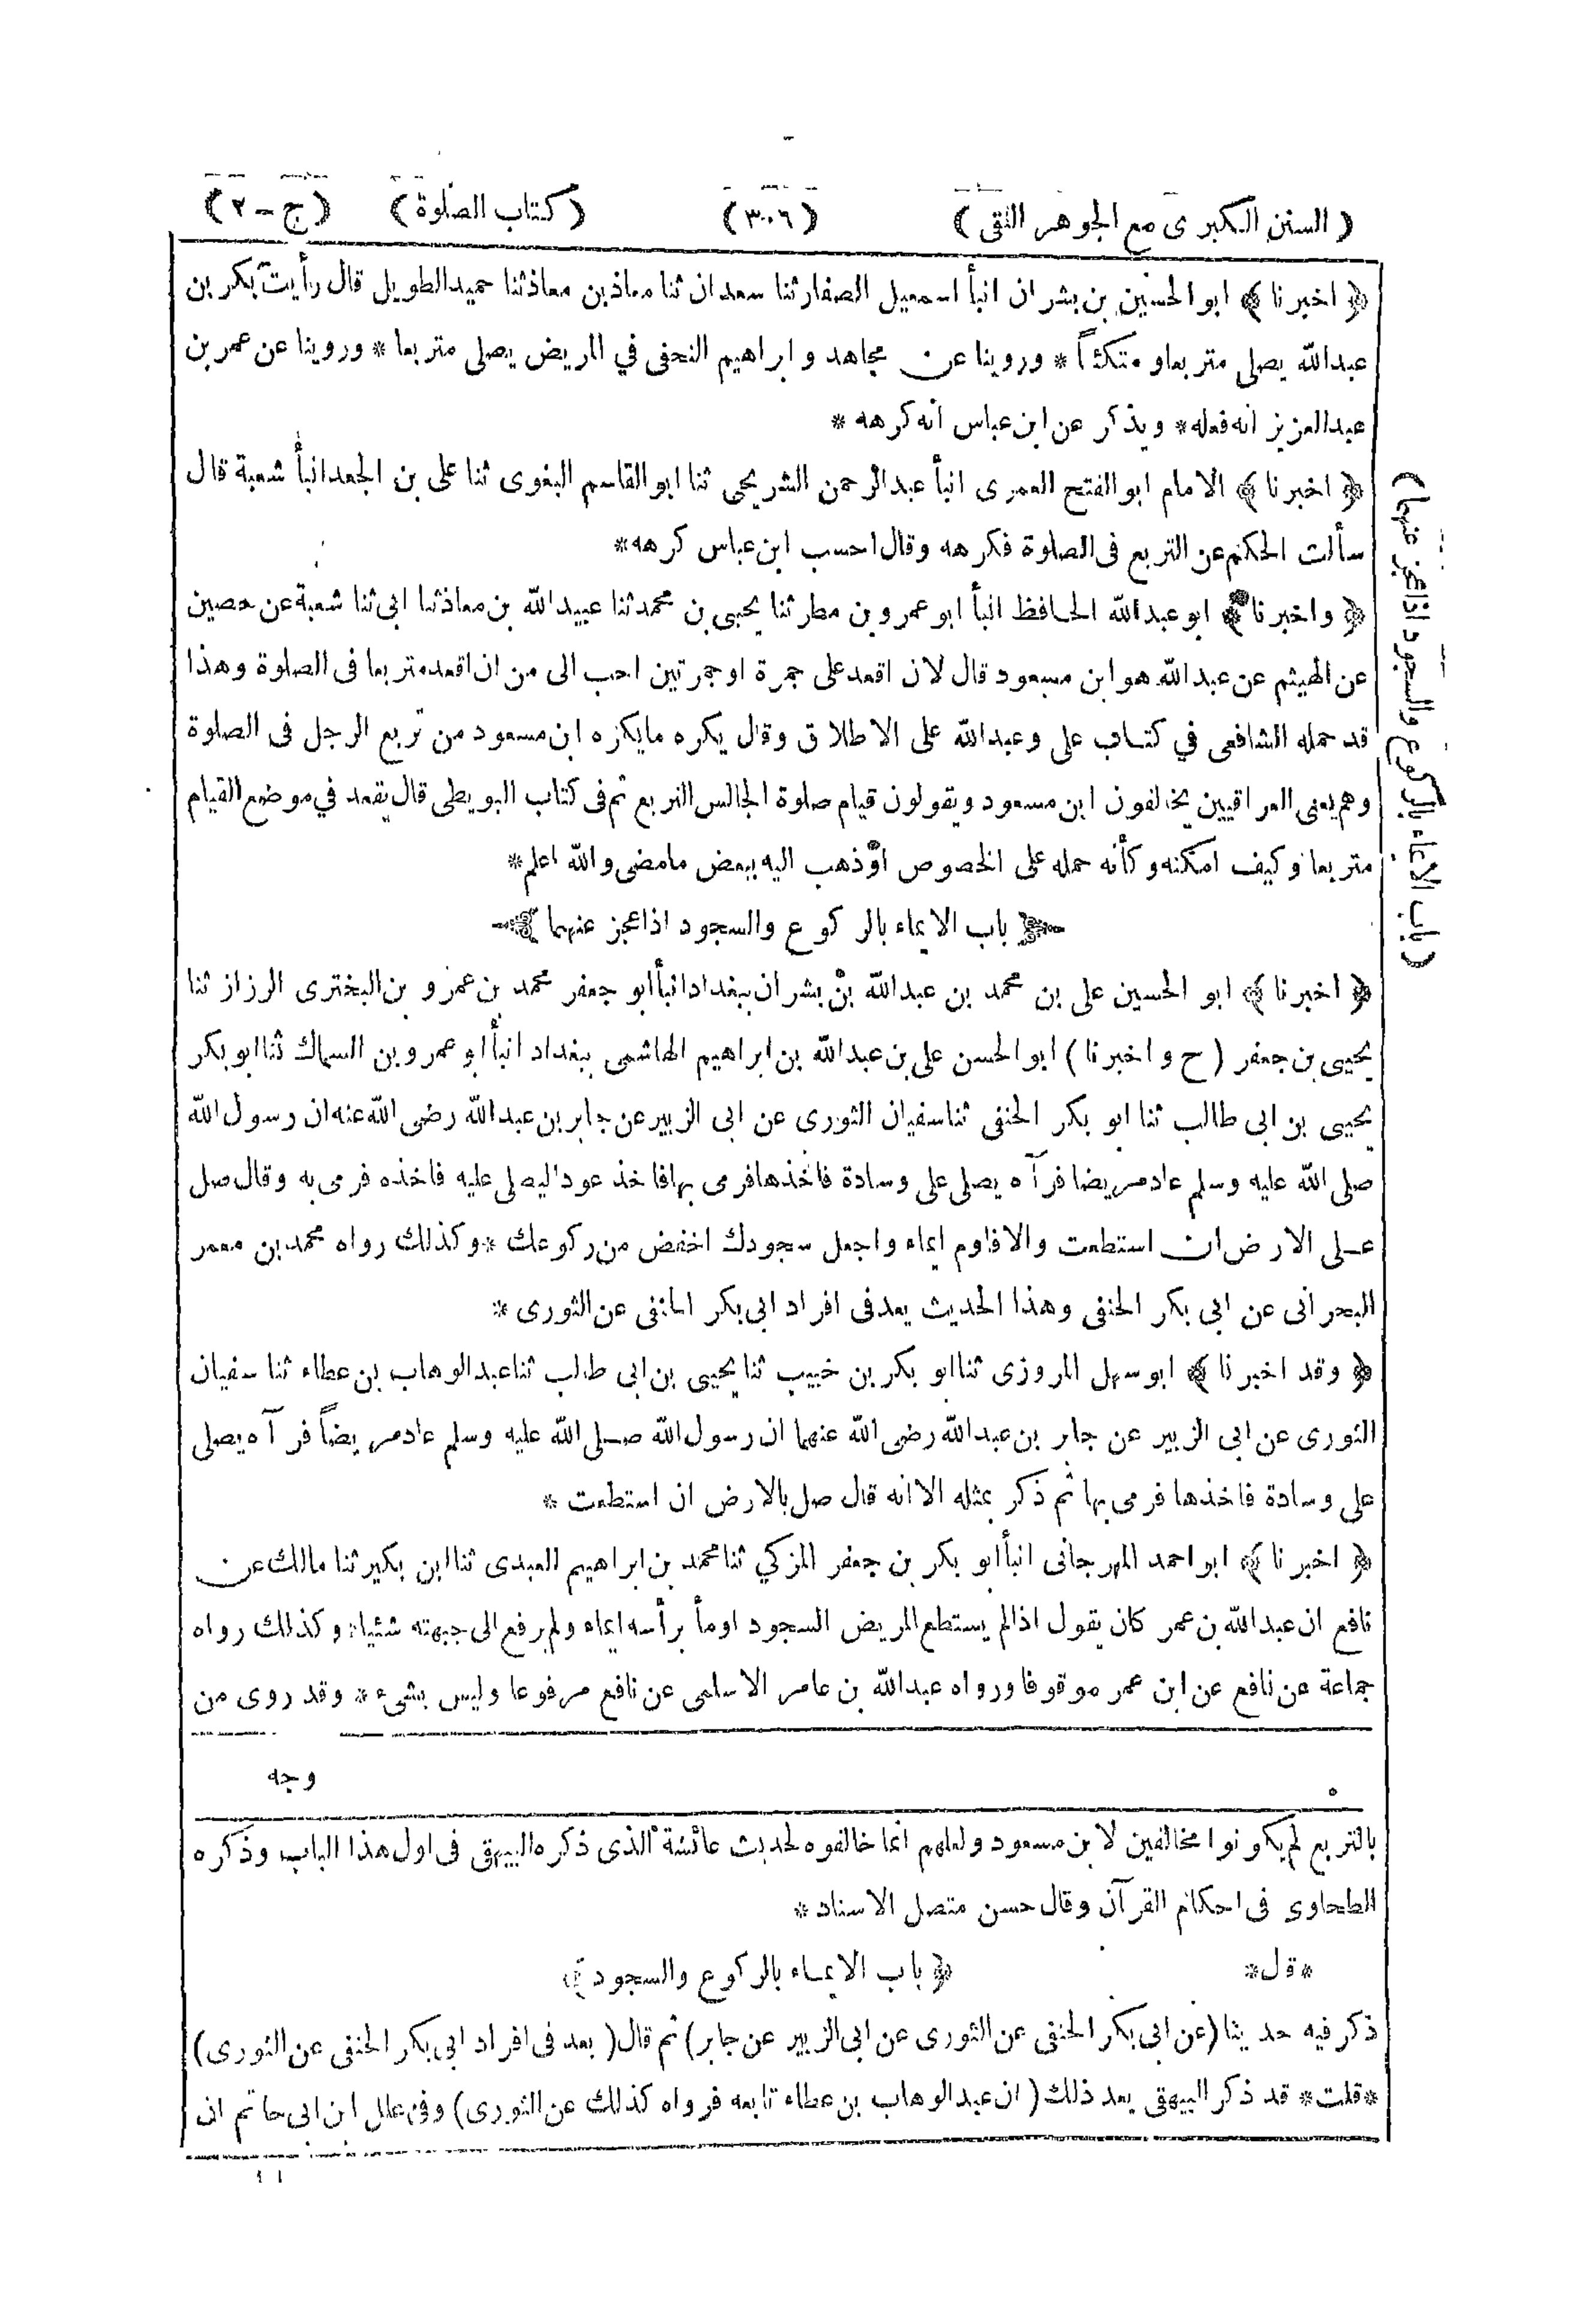 (السنن الكبرى مع الجوهر النقى) (٣٠٦) (كتاب الصلوة) (ج - ٢)
﴿ اخبرنا ﴾ ابو الحسين بن بشران انبأ اسمعيل الصفار ثنا سعدان ثنا معاذ بن معاذ ثنا حميد الطويل قال رأيت بكر بن
عبد الله يصلى متربعا و متكئاً * وروينا عن مجاهد و ابراهيم النخعى في المريض يصلى متربعا * وروينا عن عمر بن
عبد العزيز انه فعله * ويذكر عن ابن عباس انه كرهه *
﴿ اخبرنا ﴾ الامام ابو الفتح العمرى انبأ عبد الرحمن الشريحى ثنا ابو القاسم البغوى ثنا على بن الجعد انبأ شعبة قال
سألت الحكم عن التربع فى الصلوة فكرهه وقال احسب ابن عباس كرهه *
﴿ و اخبرنا ﴾ ابو عبد الله الحافظ انبأ ابو عمرو بن مطر ثنا يحيى بن محمد ثنا عبيد الله بن معاذ ثنا ابى ثنا شعبة عن حصين
عن الهيثم عن عبد الله هو ابن مسعود قال لان اقعد على جمرة او جمرتين احب الى من ان اقعد متربعا فى الصلوة وهذا
قد حمله الشافعى في كتاب على وعبد الله على الاطلاق وقال يكره مايكره ابن مسعود من تربع الرجل فى الصلوة
وهم يعنى العراقيين يخالفون ابن مسعود ويقولون قيام صلوة الجالس التربع ثم فى كتاب البويطى قال يقعد في موضع القيام
متربعا وكيف امكنه وكأنه حمله على الخصوص او ذهب اليه ببعض مامضى والله اعلم *
﴿ باب الايماء بالركوع والسجود اذا عجز عنهما ﴾
﴿ اخبرنا ﴾ ابو الحسين على بن محمد بن عبد الله بن بشران ببغداد انبأ ابو جعفر محمد بن عمرو بن البخترى الرزاز ثنا
يحيى بن جعفر (ح و اخبرنا) ابو الحسن على بن عبد الله بن ابراهيم الهاشمى ببغداد انبأ ابو عمرو بن السماك ثنا ابو بكر
يحيى بن ابى طالب ثنا ابو بكر الحنفى ثنا سفيان الثورى عن ابى الزبير عن جابر بن عبد الله رضى الله عنه ان رسول الله
صلى الله عليه وسلم عاد مريضا فرآه يصلى على وسادة فاخذها فرمى بها فاخذ عودا ليصلى عليه فاخذه فرمى به وقال صل
على الارض ان استطعت والا فاوم ايماء واجعل سجودك اخفض من ركوعك * وكذلك رواه محمد بن معمر
البحرانى عن ابى بكر الحنفى وهذا الحديث يعد فى افراد ابى بكر الحنفى عن الثورى *
﴿ وقد اخبرنا ﴾ ابو سهل المروزى ثنا ابو بكر بن خبيب ثنا يحيى بن ابى طالب ثنا عبد الوهاب بن عطاء ثنا سفيان
الثورى عن ابى الزبير عن جابر بن عبد الله رضى الله عنهما ان رسول الله صلى الله عليه وسلم عاد مريضاً فرآه يصلى
على وسادة فاخذها فرمى بها ثم ذكر بمثله الا انه قال صل بالارض ان استطعت *
﴿ اخبرنا ﴾ ابو احمد المهرجانى انبأ ابو بكر بن جعفر المزكي ثنا محمد بن ابراهيم العبدى ثنا ابن بكير ثنا مالك عن
نافع ان عبد الله بن عمر كان يقول اذا لم يستطع المريض السجود اومأ برأسه ايماء ولم يرفع الى جبهته شئيا * وكذلك رواه
جماعة عن نافع عن ابن عمر موقوفا ورواه عبد الله بن عامر الاسلمى عن نافع مرفوعا وليس بشىء * وقد روى من
وجه
بالتربع لم يكونوا مخالفين لابن مسعود ولعلهم انما خالفوه لحديث عائشة الذى ذكره البيهقى فى اول هذا الباب وذكره
الطحاوى فى احكام القرآن وقال حسن متصل الاسناد *
* قال * ﴿ باب الايماء بالركوع والسجود ﴾
ذكر فيه حديثا (عن ابى بكر الحنفى عن الثورى عن ابى الزبير عن جابر) ثم قال (يعد فى افراد ابى بكر الحنفى عن الثورى)
* قلت * قد ذكر البيهقى بعد ذلك (ان عبد الوهاب بن عطاء تابعه فرواه كذلك عن الثورى) وفى علل ابن ابى حاتم ان
(باب الايماء بالركوع والسجود اذا عجز عنهما)